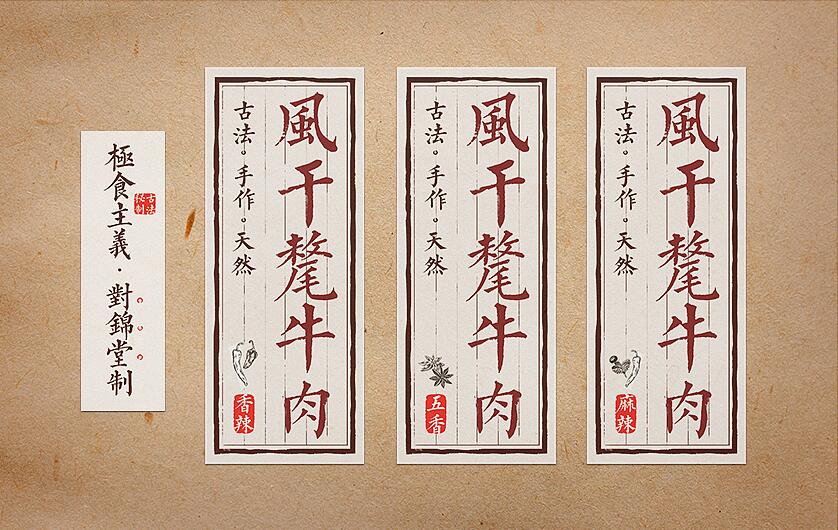 極食主義·對錦堂制
古法秘制
風干氂牛肉
古法。手作。天然
香辣
風干氂牛肉
古法。手作。天然
五香
風干氂牛肉
古法。手作。天然
麻辣